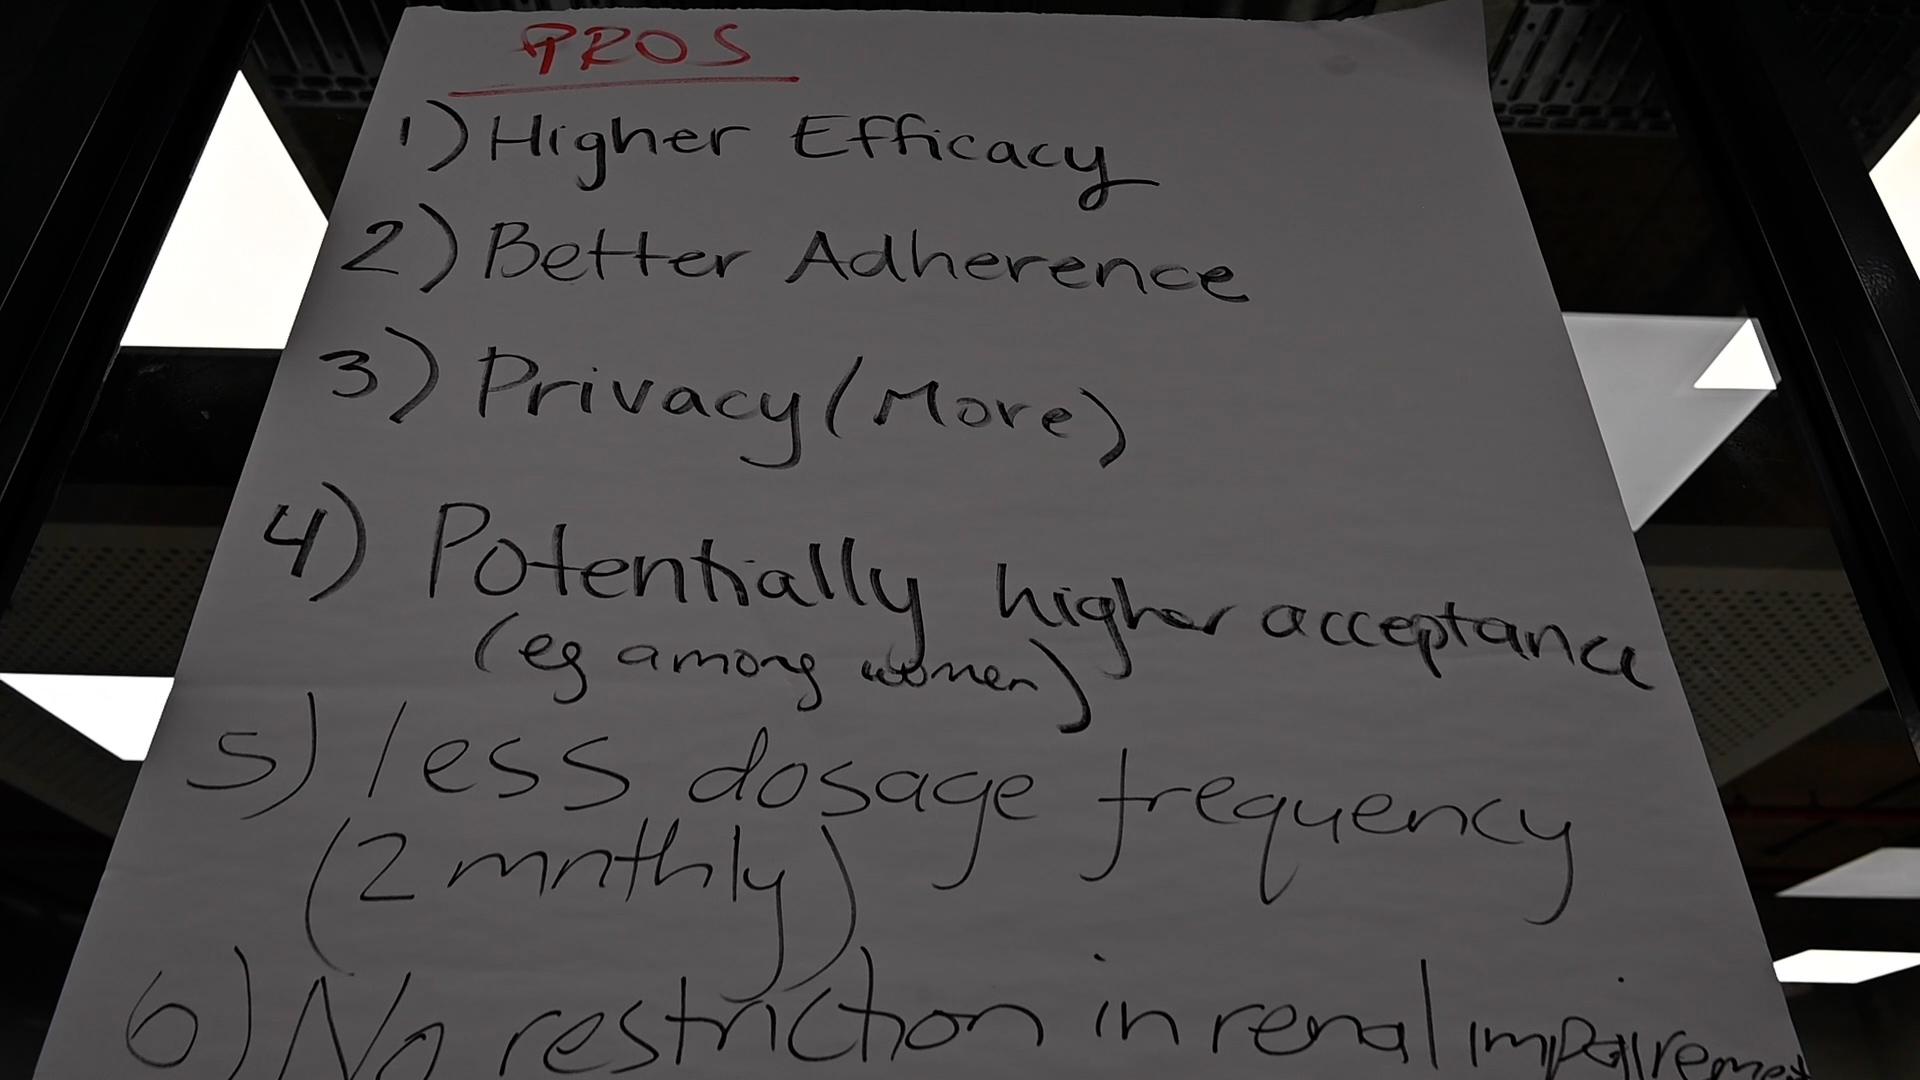 PROS
1) Higher Efficacy
2) Better Adherence
3) Privacy (More)
4) Potentially higher acceptance
(eg among women)
5) less dosage frequency
(2 mnthly)
6) No restriction in renal impairement